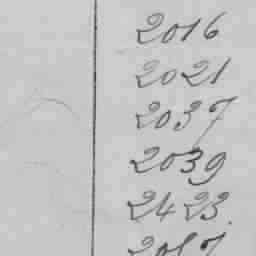 2016
2021
2037
2039
2423